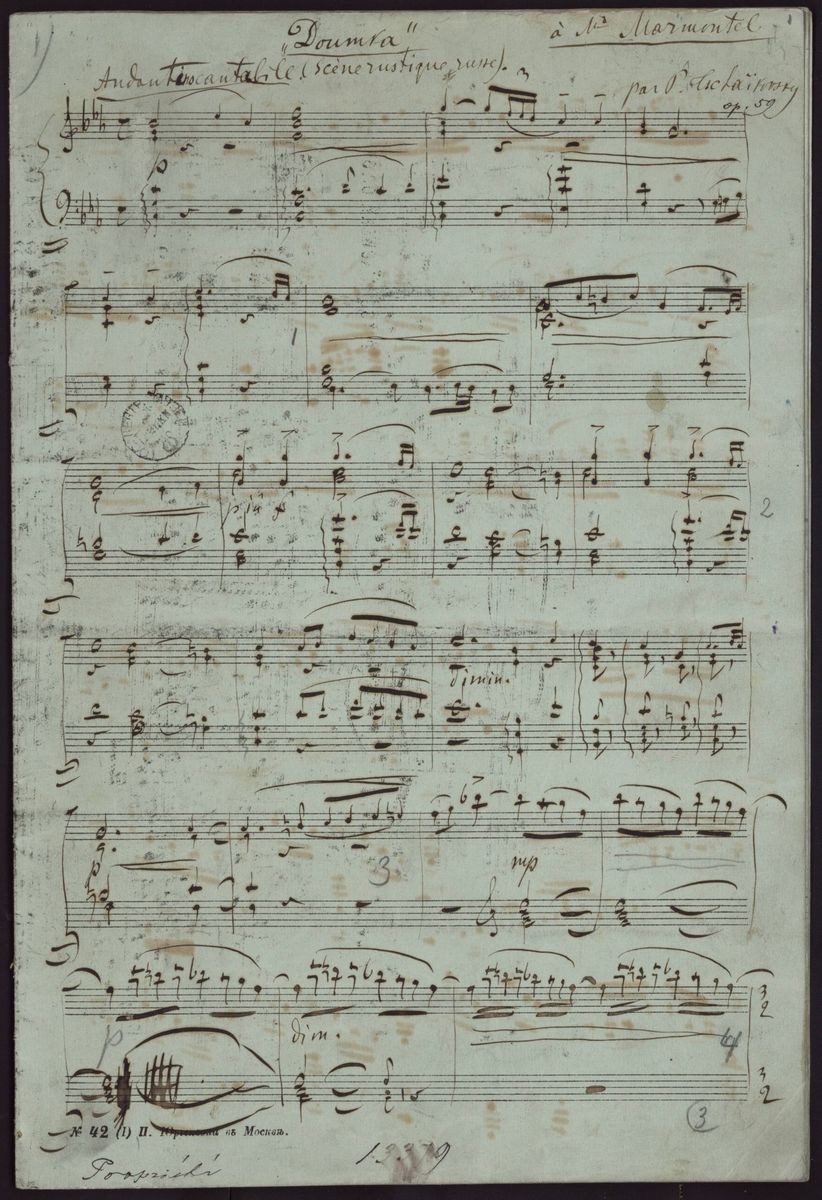 1) „Doumka" à Mr Marmontel 1
Andantino cantabile (Scène rustique russe).
par P. Tschaïkovsky
op. 59
3
1
più f
2
dimin.
p
3.
mp
p
dim.
4
3
2
3
2
3
№ 42 (1) П. Юргенсонъ въ Москвѣ.